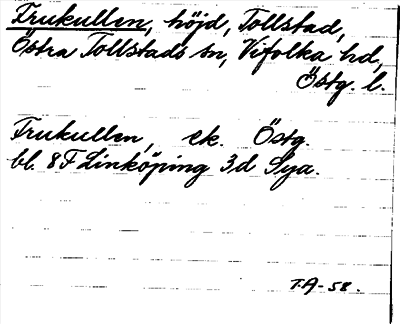 Frukullen, höjd, Tollstad,
Östra Tollstads sn, Vifolka hd,
Östg. l.
Frukullen, ek. Östg.
bl. 8F Linköping 3d Sya.
T.A-58.